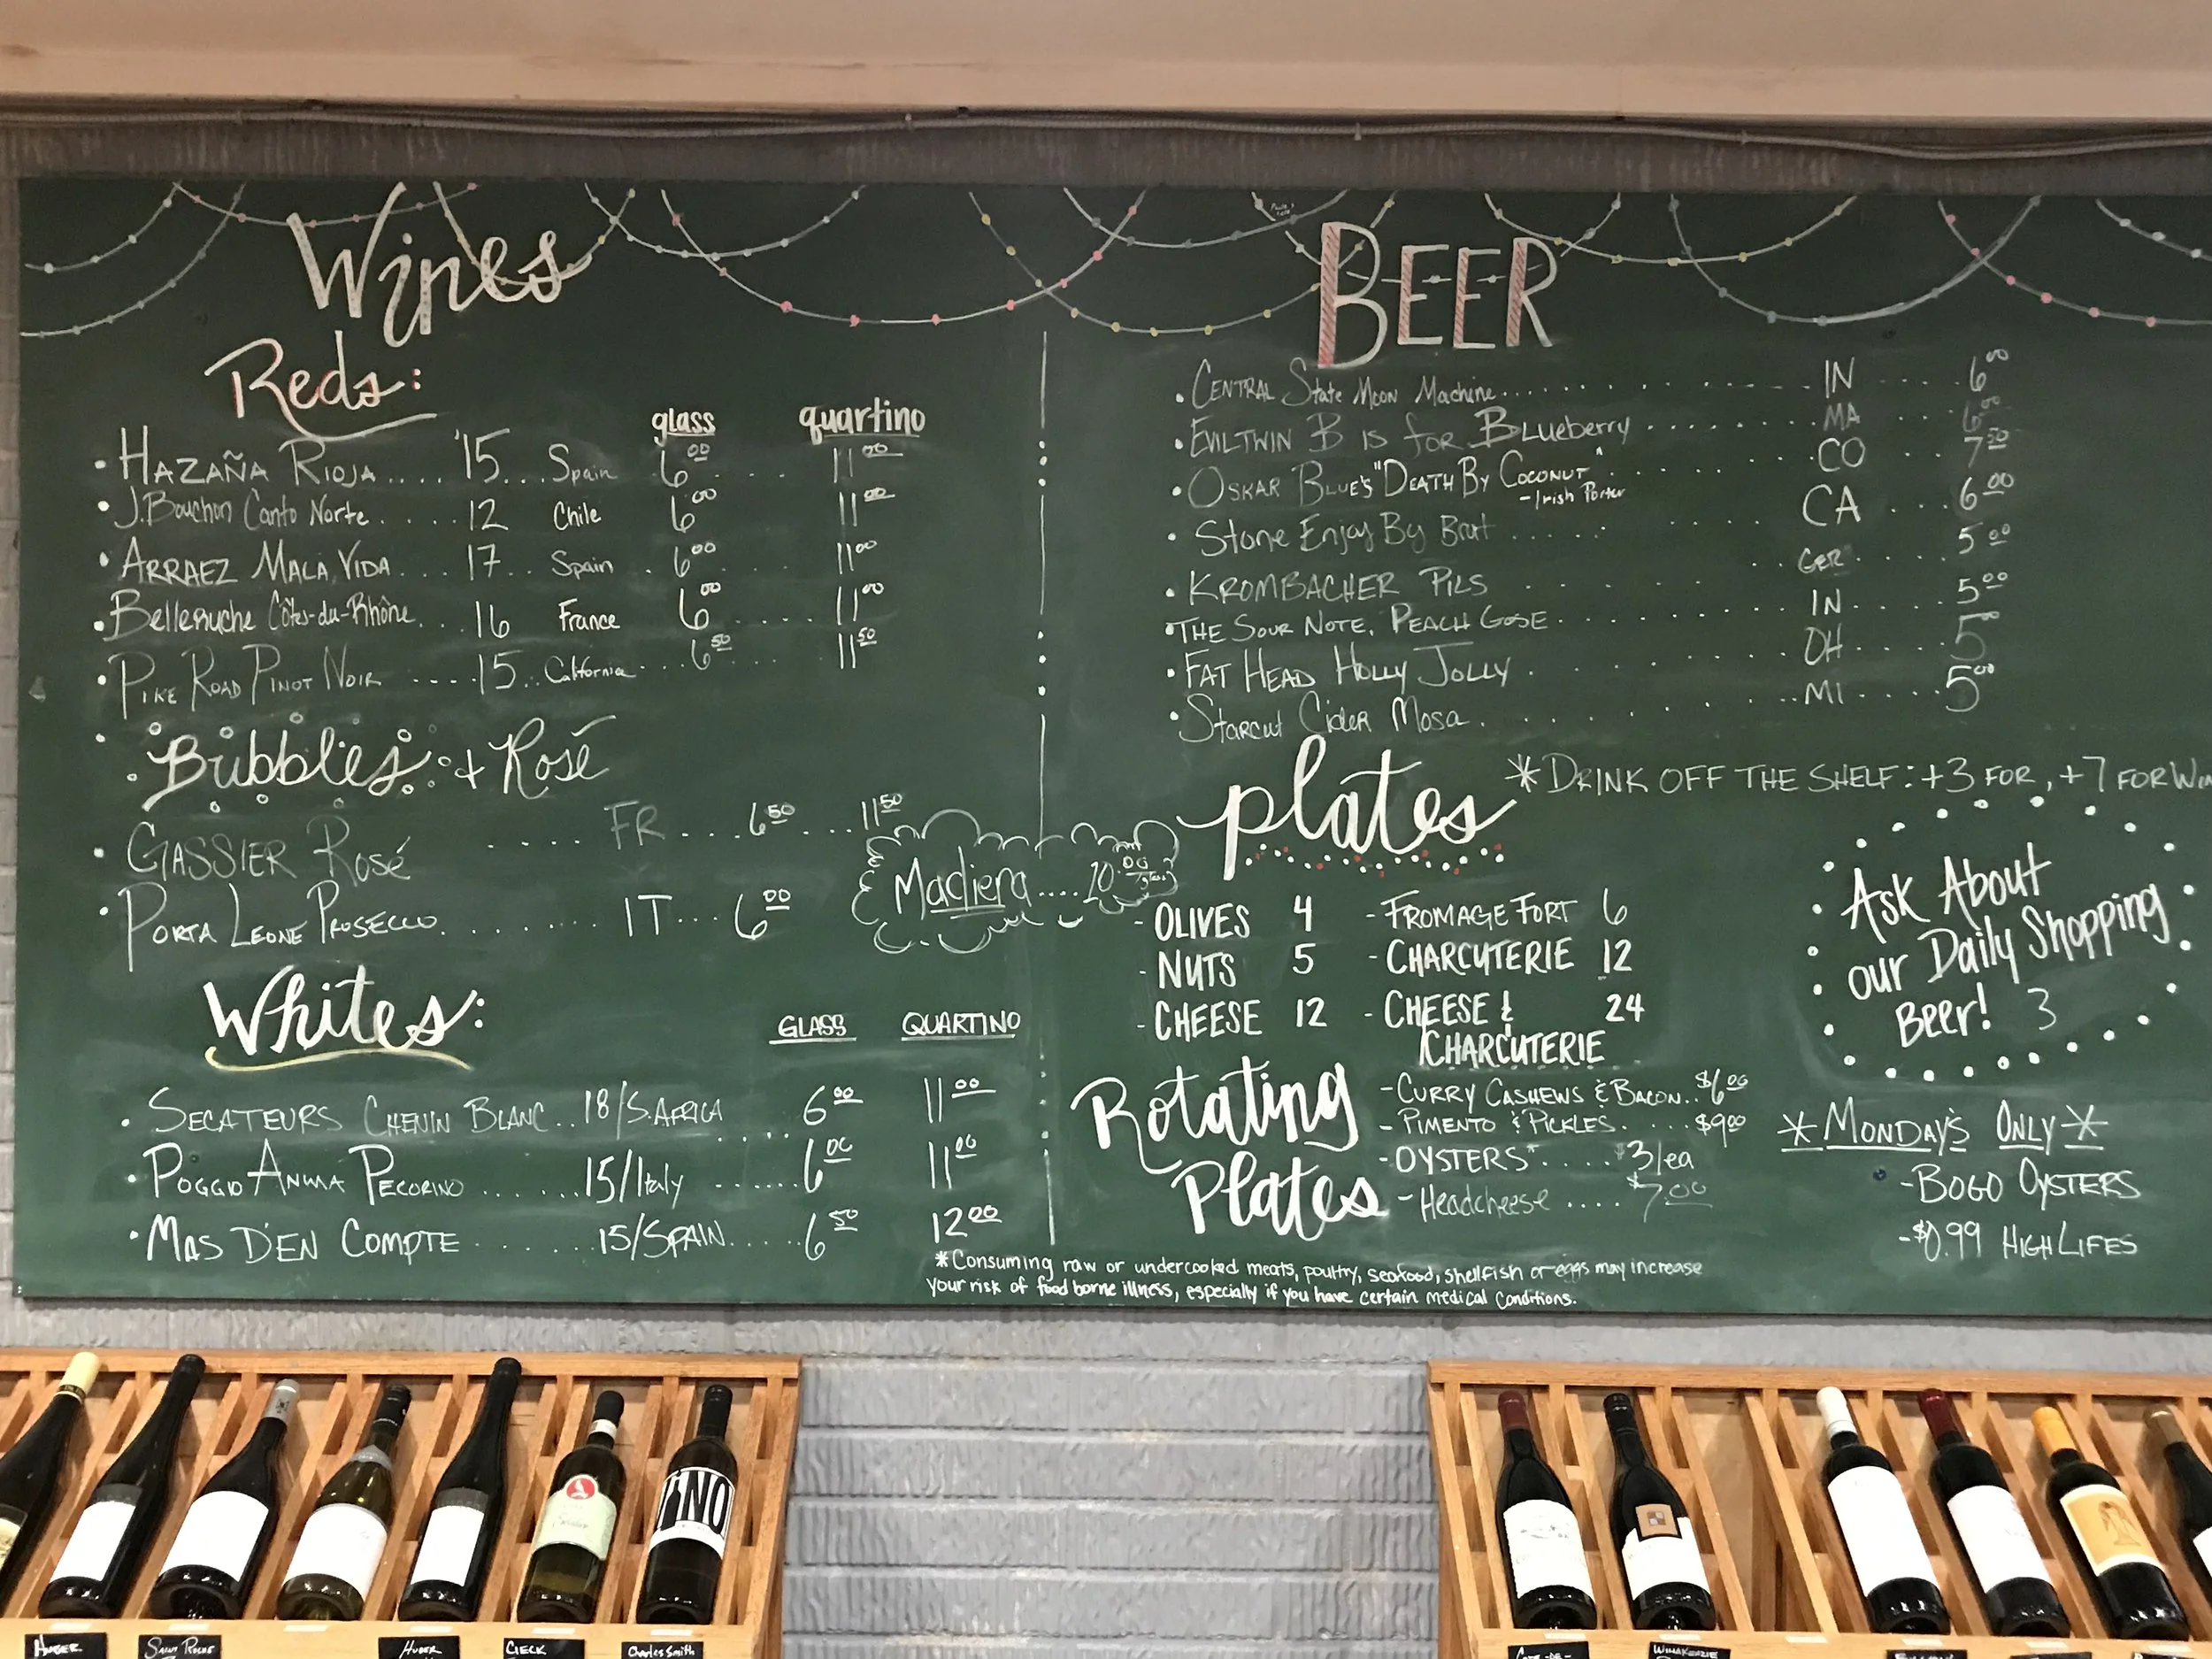 Wines
Reds:
glass quartino
· HAZAÑA RIOJA.... '15... Spain 6.00 .... 11.00
· J. Bouchon Canto Norte..... 12 Chile 6.00 11.00
· ARRAEZ MALA VIDA.... 17... Spain . 6.00 11.00
· Belleruche Côtes-du-Rhône... 16 France 6.00 ..... 11.00
· PIKE ROAD PINOT NOIR ---- 15.. California... 6.50 .... 11.50
· Bubbles + Rosé
· GASSIER Rosé ..... FR.... 6.50 ... 11.50
· PORTA LEONE PROSECCO......... IT... 6.00
Madiera.... 10.00/glass
Whites:
GLASS QUARTINO
· SECATEURS CHENIN BLANC.. 18/S.AFRICA .... 6.00 11.00
· POGGIO ANIMA PECORINO ...... 15/Italy ...... 6.00 11.00
· MAS D'EN COMPTE ....... 15/SPAIN..... 6.50 12.00
BEER
· CENTRAL State Moon Machine........ IN .... 6.00
· EVILTWIN B IS for BLueberry ........ MA .... 6.00
· OSKAR BLUE'S "DEATH BY COCONUT" ...... CO ... 7.50
- Irish Porter
· Stone Enjoy By Brut ........ CA ... 6.00
· KROMBACHER PILS ....... GER.... 5.00
· THE SOUR NOTE, PEACH GOSE ........ IN..... 5.00
· FAT HEAD HOLLY JOLLY ........ OH..... 5.00
· Starcut Cider Mosa ........ MI..... 5.00
plates
* DRINK OFF THE SHELF: +3 FOR, +7 FOR WIN
- OLIVES 4 - FROMAGE FORT 6
- NUTS 5 - CHARCUTERIE 12
- CHEESE 12 - CHEESE & 24
CHARCUTERIE
Ask About
our Daily Shopping
Beer! 3
Rotating
Plates
- CURRY CASHEWS & BACON.. $6.00
- PIMENTO & PICKLES..... $9.00
- OYSTERS*.... $3/ea
- Headcheese .... $7.00
* MONDAY'S ONLY *
- BOGO OYSTERS
- $0.99 HIGH LIFES
*Consuming raw or undercooked meats, poultry, seafood, shellfish or eggs may increase
your risk of food borne illness, especially if you have certain medical conditions.
VINO
HUGER
HUGER
CIECK
Charles Smith